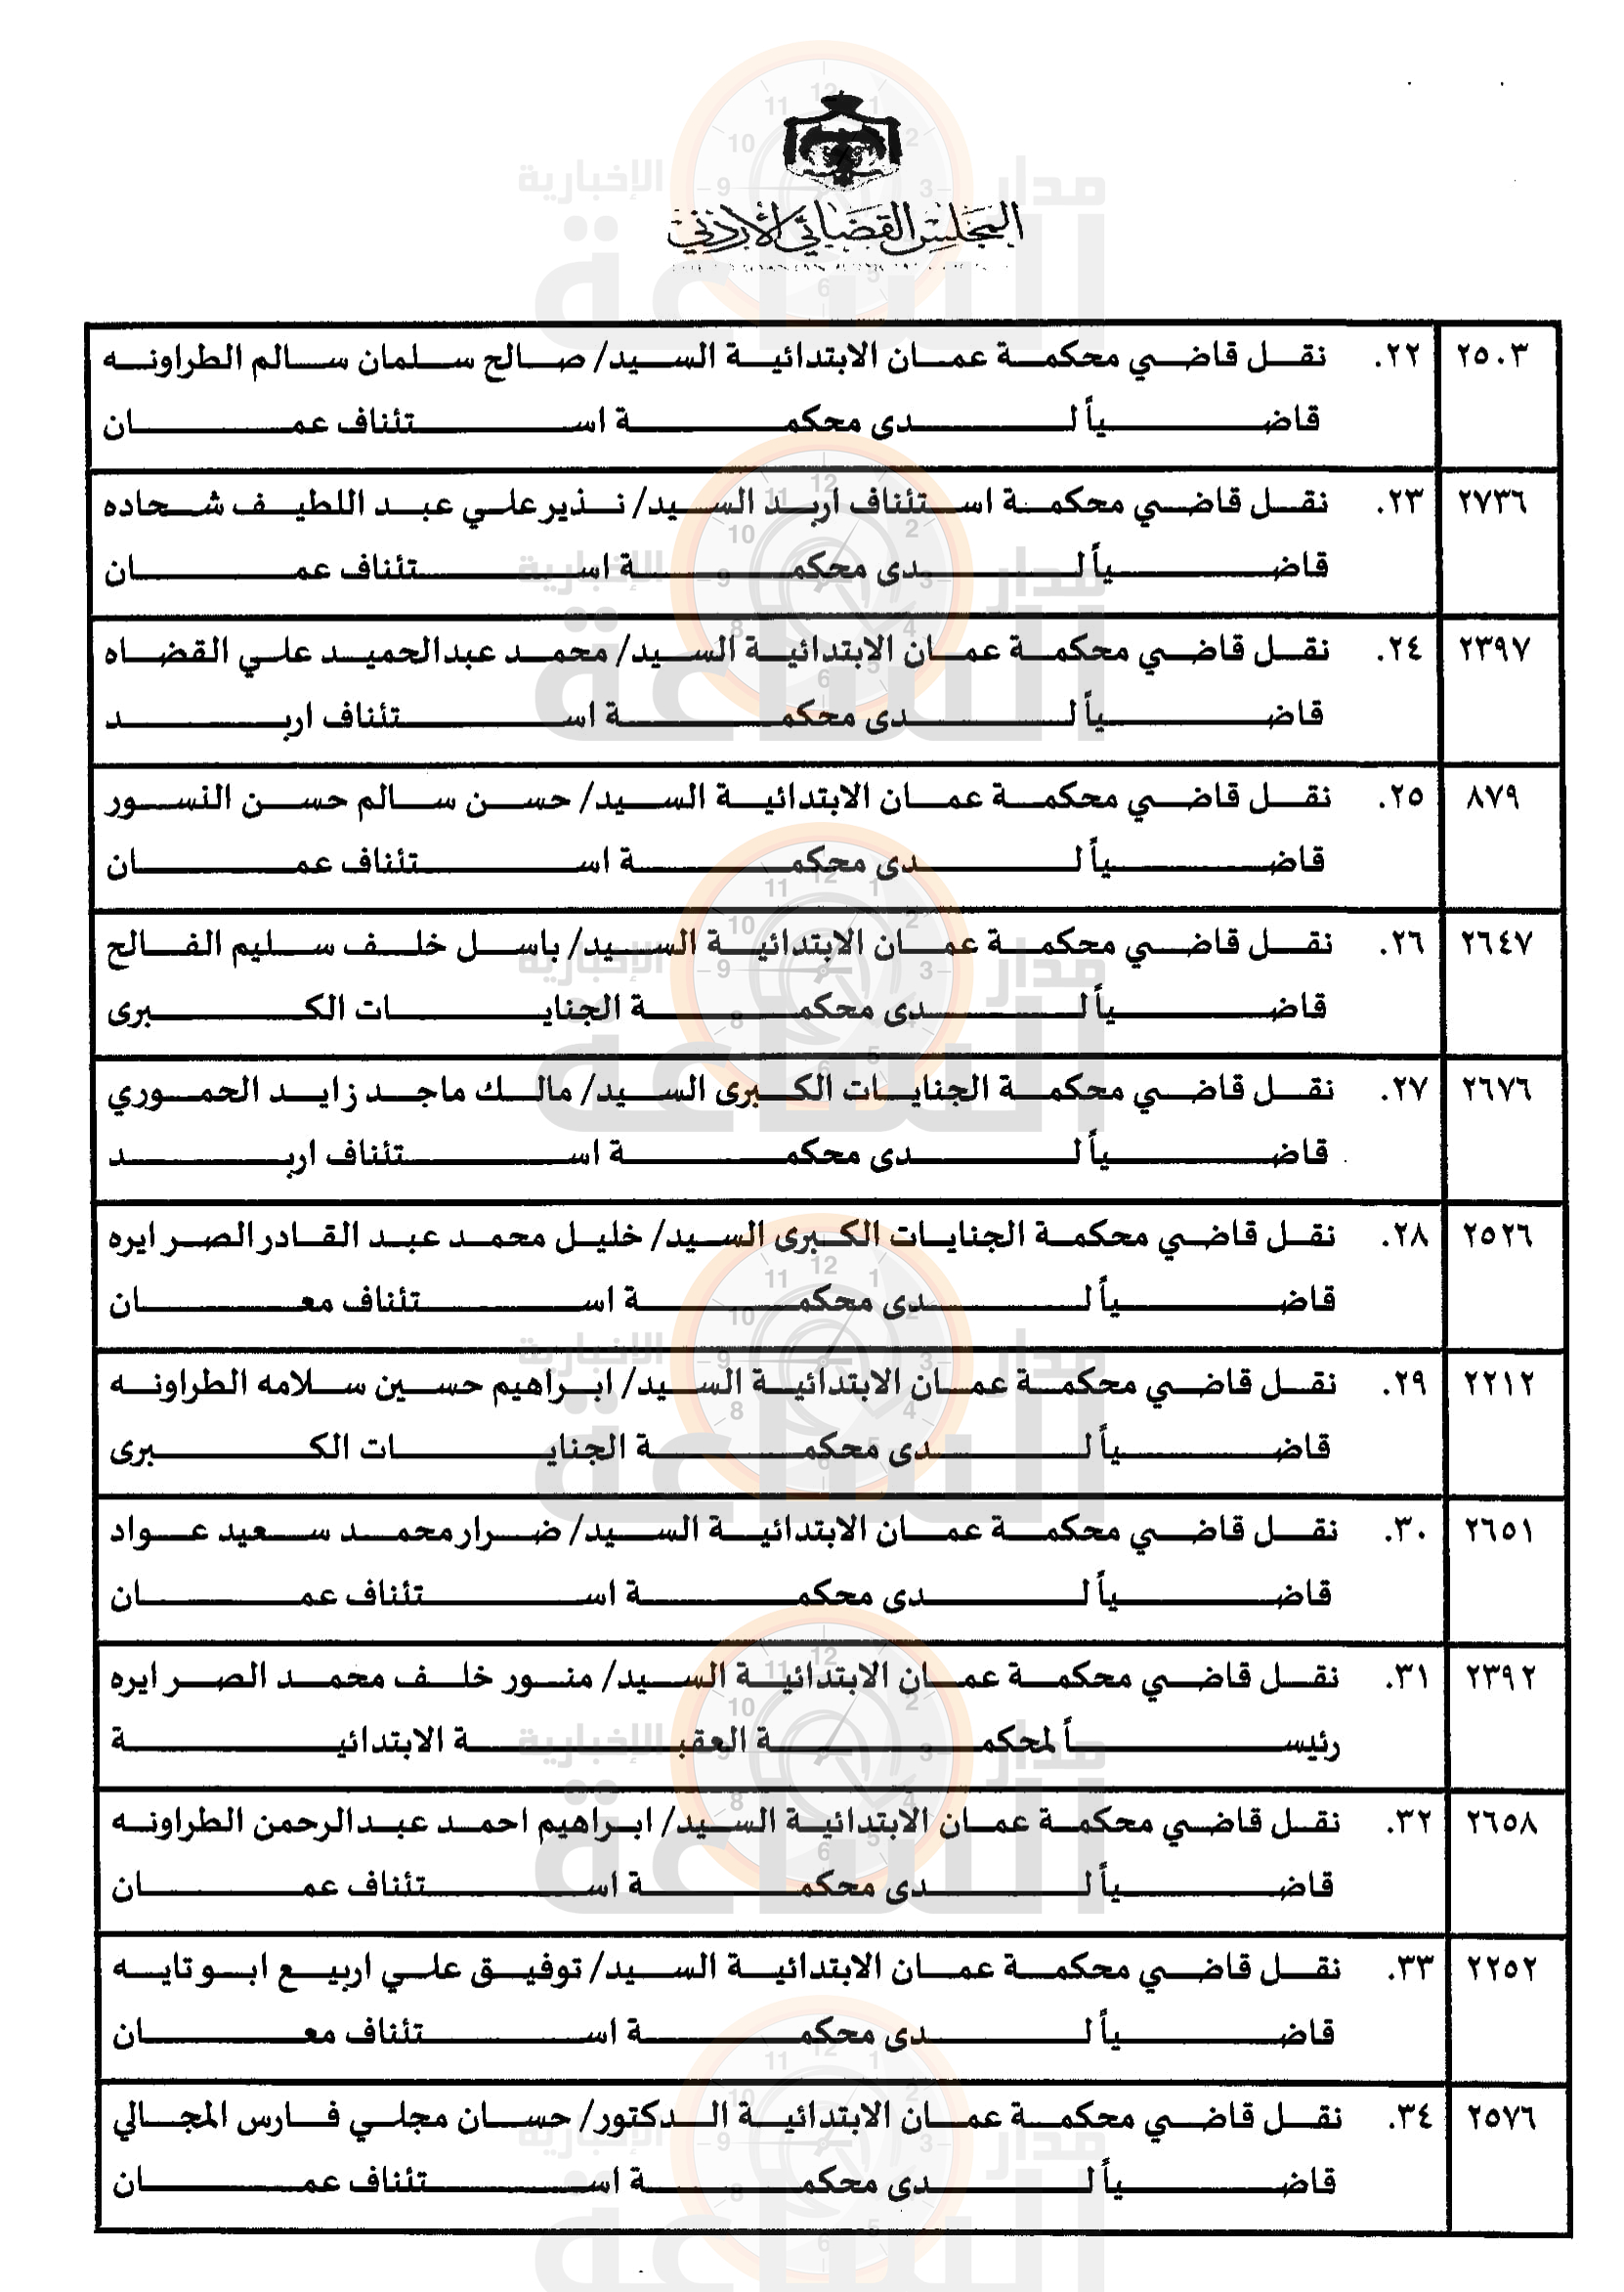 المجلس القضائي الأردني
٢٥٠٣ ٢٢. نقل قاضي محكمة عمان الابتدائية السيد/ صالح سلمان سالم الطراونه
قاضياً لدى محكمة استئناف عمان
٢٧٣٦ ٢٣. نقل قاضي محكمة استئناف اربد السيد/ نذير علي عبد اللطيف شحاده
قاضياً لدى محكمة استئناف عمان
٢٣٩٧ ٢٤. نقل قاضي محكمة عمان الابتدائية السيد/ محمد عبدالحميد علي القضاه
قاضياً لدى محكمة استئناف اربد
٨٧٩ ٢٥. نقل قاضي محكمة عمان الابتدائية السيد/ حسن سالم حسن النسور
قاضياً لدى محكمة استئناف عمان
٢٦٤٧ ٢٦. نقل قاضي محكمة عمان الابتدائية السيد/ باسل خلف سليم الفالح
قاضياً لدى محكمة الجنايات الكبرى
٢٦٧٦ ٢٧. نقل قاضي محكمة الجنايات الكبرى السيد/ مالك ماجد زايد الحموري
قاضياً لدى محكمة استئناف اربد
٢٥٢٦ ٢٨. نقل قاضي محكمة الجنايات الكبرى السيد/ خليل محمد عبد القادر الصرايره
قاضياً لدى محكمة استئناف معان
٢٢١٢ ٢٩. نقل قاضي محكمة عمان الابتدائية السيد/ ابراهيم حسين سلامه الطراونه
قاضياً لدى محكمة الجنايات الكبرى
٢٦٥١ ٣٠. نقل قاضي محكمة عمان الابتدائية السيد/ ضرار محمد سعيد عواد
قاضياً لدى محكمة استئناف عمان
٢٣٩٢ ٣١. نقل قاضي محكمة عمان الابتدائية السيد/ منور خلف محمد الصرايره
رئيساً لمحكمة العقبة الابتدائية
٢٦٥٨ ٣٢. نقل قاضي محكمة عمان الابتدائية السيد/ ابراهيم احمد عبدالرحمن الطراونه
قاضياً لدى محكمة استئناف عمان
٢٢٥٢ ٣٣. نقل قاضي محكمة عمان الابتدائية السيد/ توفيق علي اربيع ابو تايه
قاضياً لدى محكمة استئناف معان
٢٥٧٦ ٣٤. نقل قاضي محكمة عمان الابتدائية الدكتور/ حسان مجلي فارس المجالي
قاضياً لدى محكمة استئناف عمان
مدار الساعة الإخبارية